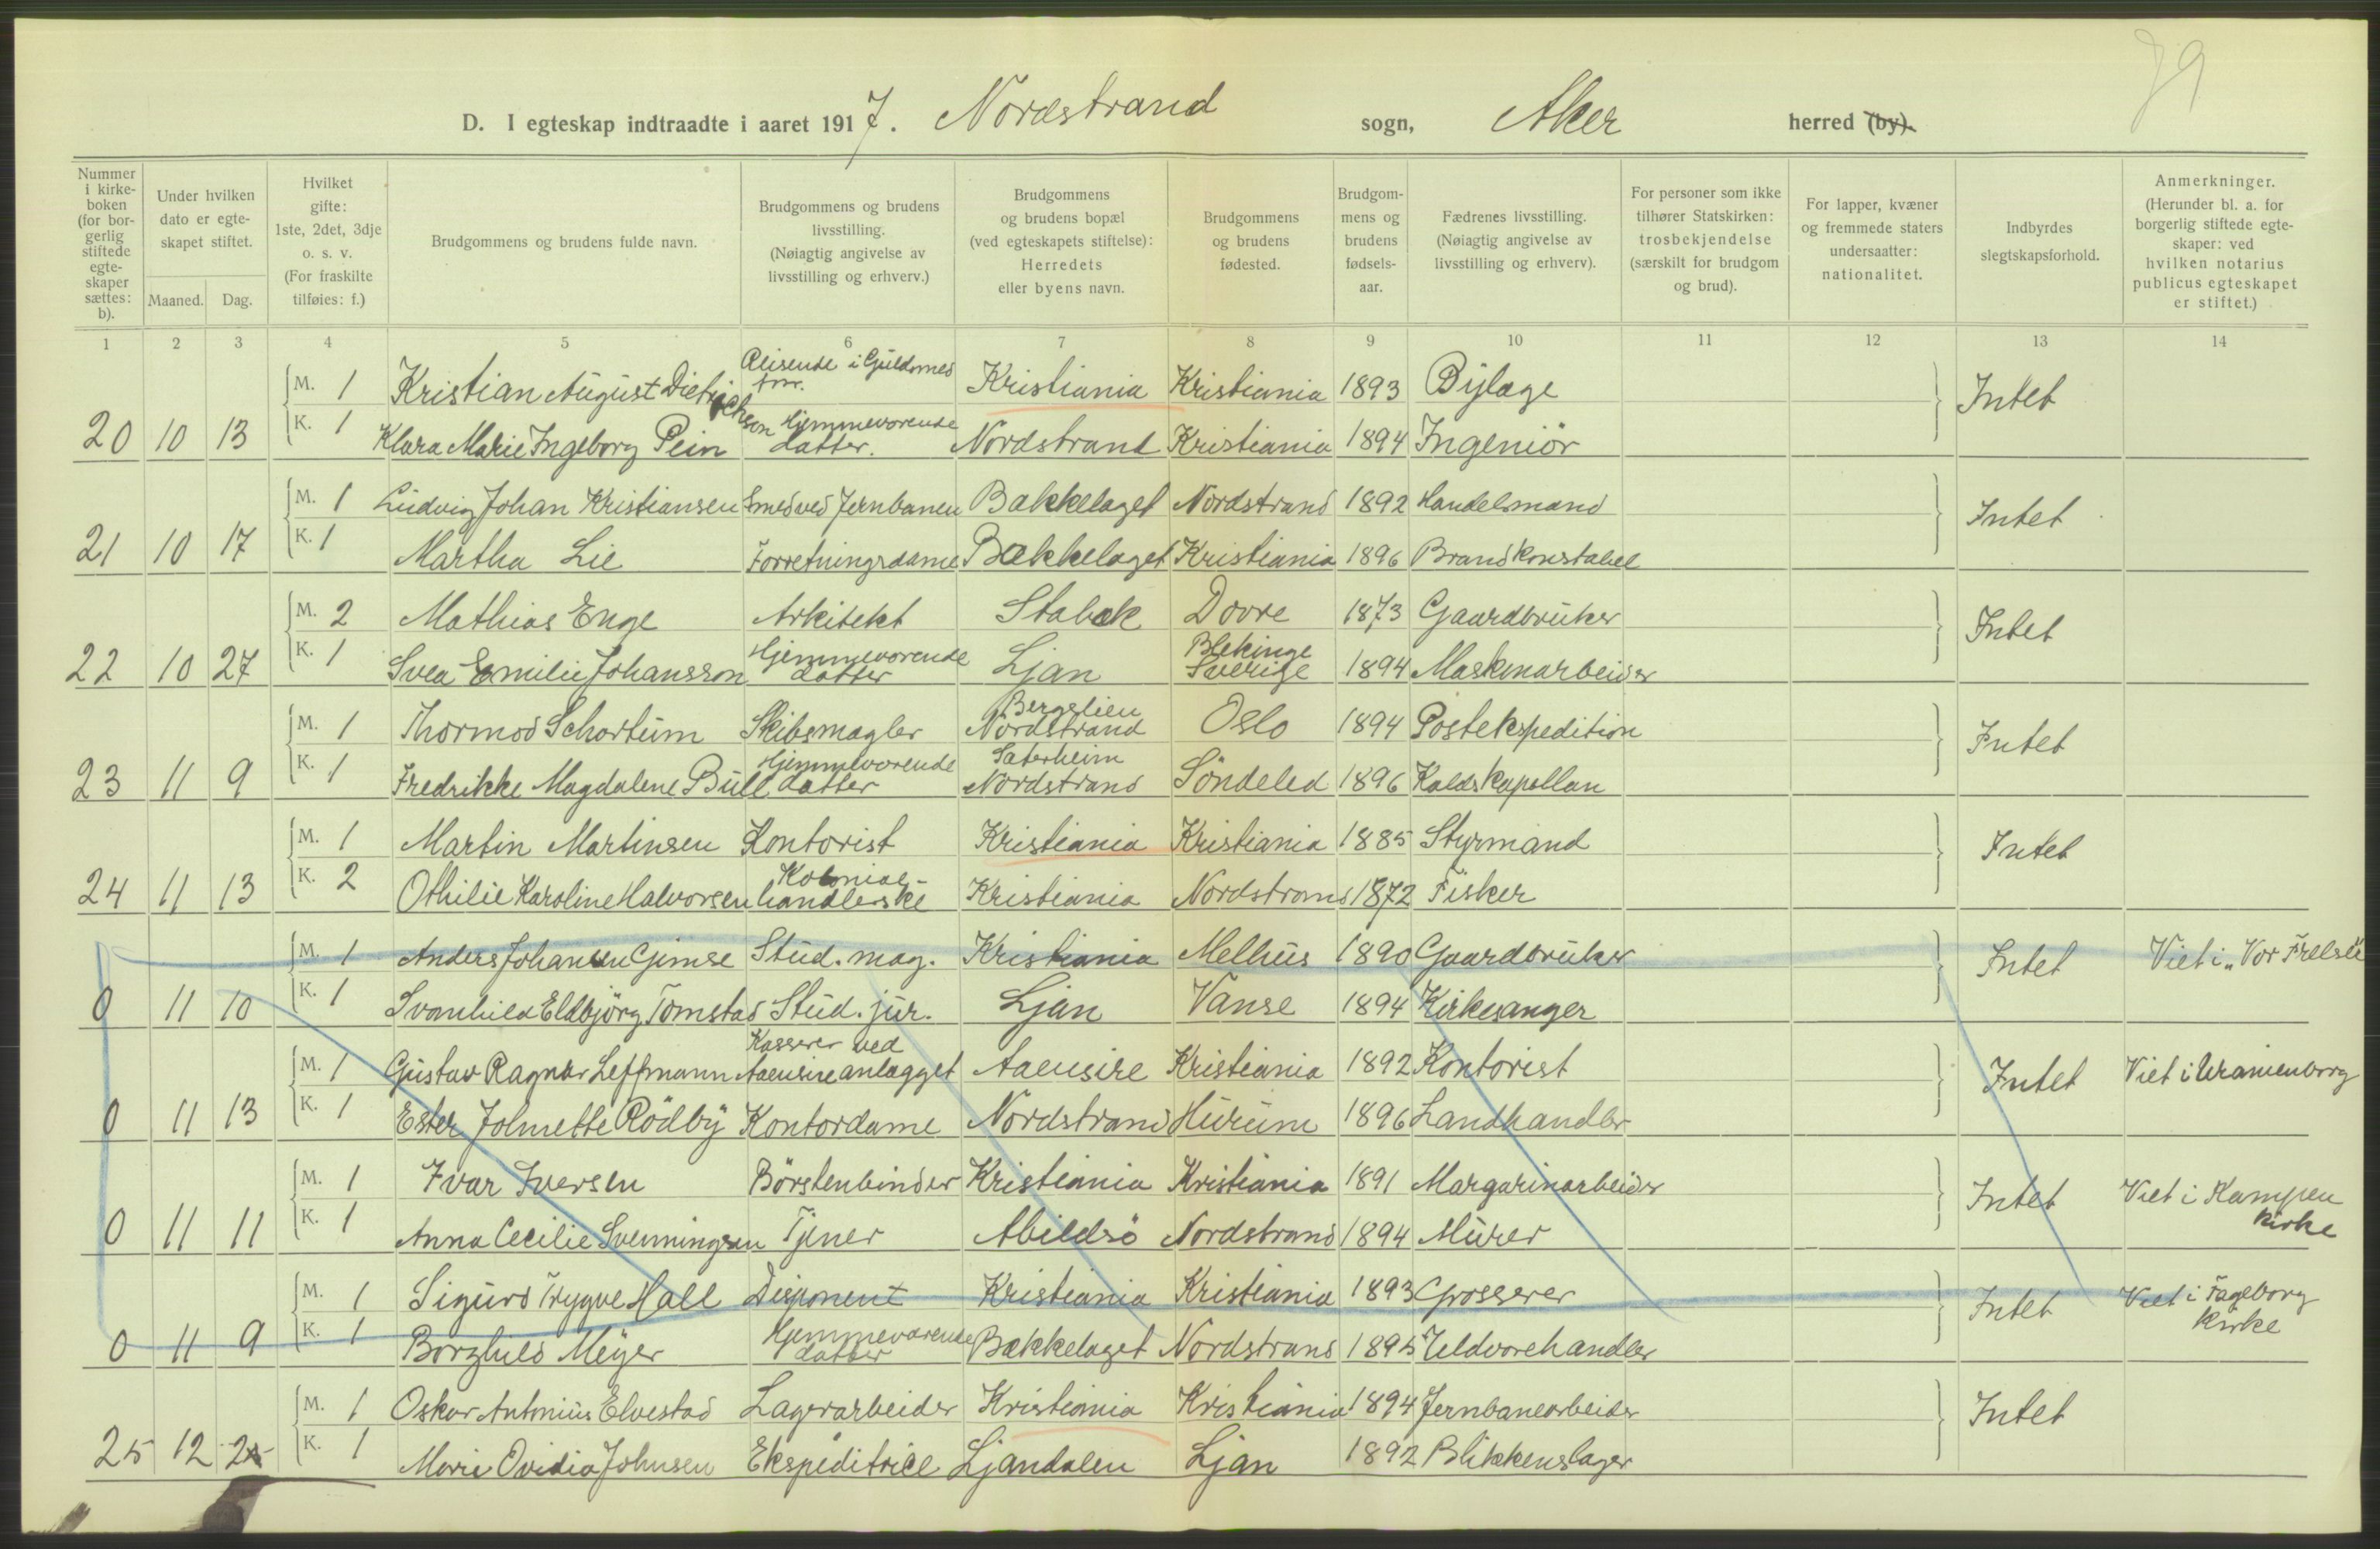 79
D. I egteskap indtraadte i aaret 1917. Nordstrand sogn, Aker herred (by).
Nummer i kirkeboken (for borgerlig stiftede egteskaper sættes: b).
Under hvilken dato er egteskapet stiftet.
Maaned. Dag.
Hvilket gifte: 1ste, 2det, 3dje o. s. v. (For fraskilte tilføies: f.)
Brudgommens og brudens fulde navn.
Brudgommens og brudens livsstilling. (Nøiagtig angivelse av livsstilling og erhverv.)
Brudgommens og brudens bopæl (ved egteskapets stiftelse): Herredets eller byens navn.
Brudgommens og brudens fødested.
Brudgommens og brudens fødselsaar.
Fædrenes livsstilling. (Nøiagtig angivelse av livsstilling og erhverv).
For personer som ikke tilhører Statskirken: trosbekjendelse (særskilt for brudgom og brud).
For lapper, kvæner og fremmede staters undersaatter: nationalitet.
Indbyrdes slegtskapsforhold.
Anmerkninger. (Herunder bl. a. for borgerlig stiftede egteskaper: ved hvilken notarius publicus egteskapet er stiftet.)
1 2 3 4 5 6 7 8 9 10 11 12 13 14
M. 1 Kristian August Dietrichson Reisende i Guldsmed Kristiania Kristiania 1893 Intet
20 10 13 K. 1 Klara Marie Ingeborg Pein Hjemmeværende datter. Nordstrand Kristiania 1894 Ingeniör
M. 1 Ludvig Johan Kristiansen Smed ved Jernbanen Bækkelaget Nordstrand 1892 Handelsmand Intet
21 10 17 K. 1 Martha Lie Forretningsdame Bækkelaget Kristiania 1896 Brandkonstabel
M. 2 Mathias Enge Arkitekt Stabæk Dovre 1873 Gaardbruker Intet
22 10 27 K. 1 Svea Emilie Johansson Hjemmeværende datter Ljan Blekinge Sverige 1894 Maskinarbeider
M. 1 Thormod Schartum Skibsmægler Bergslien Nordstrand Oslo 1894 Postekspedition Intet
23 11 9 K. 1 Fredrikke Magdalene Bull Hjemmeværende datter Sæterheim Nordstrand Söndeled 1896 Kaldskapellan
M. 1 Martin Martinsen Kontorist Kristiania Kristiania 1885 Styrmand Intet
24 11 13 K. 2 Othilie Karoline Halvorsen Kolonialhandlerske Kristiania Nordstrand 1872 Fisker
M. 1 Anders Johansen Gimse Stud. mag. Kristiania Melhus 1890 Gaardbruker Intet Viet i "Vor Frelse
0 11 10 K. 1 Svanhild Eldbjörg Tomstad Stud. jur. Ljan Vanse 1894 Kirkesanger
M. 1 Gustav Ragnar Leffmann Kasserer ved Aaensireanlægget Aaensire Kristiania 1892 Kontorist Intet Viet i Uranienborg
0 11 13 K. 1 Ester Johnette Rödby Kontordame Nordstrand Hurum 1896 Landhandler
M. 1 Ivar Iversen Börstenbinder Kristiania Kristiania 1891 Margarinarbeider Intet Viet i Kampen Kirke
0 11 11 K. 1 Anna Cecilie Svenningsen Tjener Abildsö Nordstrand 1894 Murer
M. 1 Sigurd Trygve Hall Disponent Kristiania Kristiania 1893 Grosserer Intet Viet i Fageborg Kirke
0 11 9 K. 1 Borghild Meyer Hjemmeværende datter Bækkelaget Nordstrand 1895 Uldvarehandler
M. 1 Oskar Antonius Elvestad Lagerarbeider Kristiania Kristiania 1894 Jernbanearbeider Intet
25 12 K. 1 Marie Ovidia Johnsen Ekspeditrice Ljandalen Ljan 1892 Blikkenslager